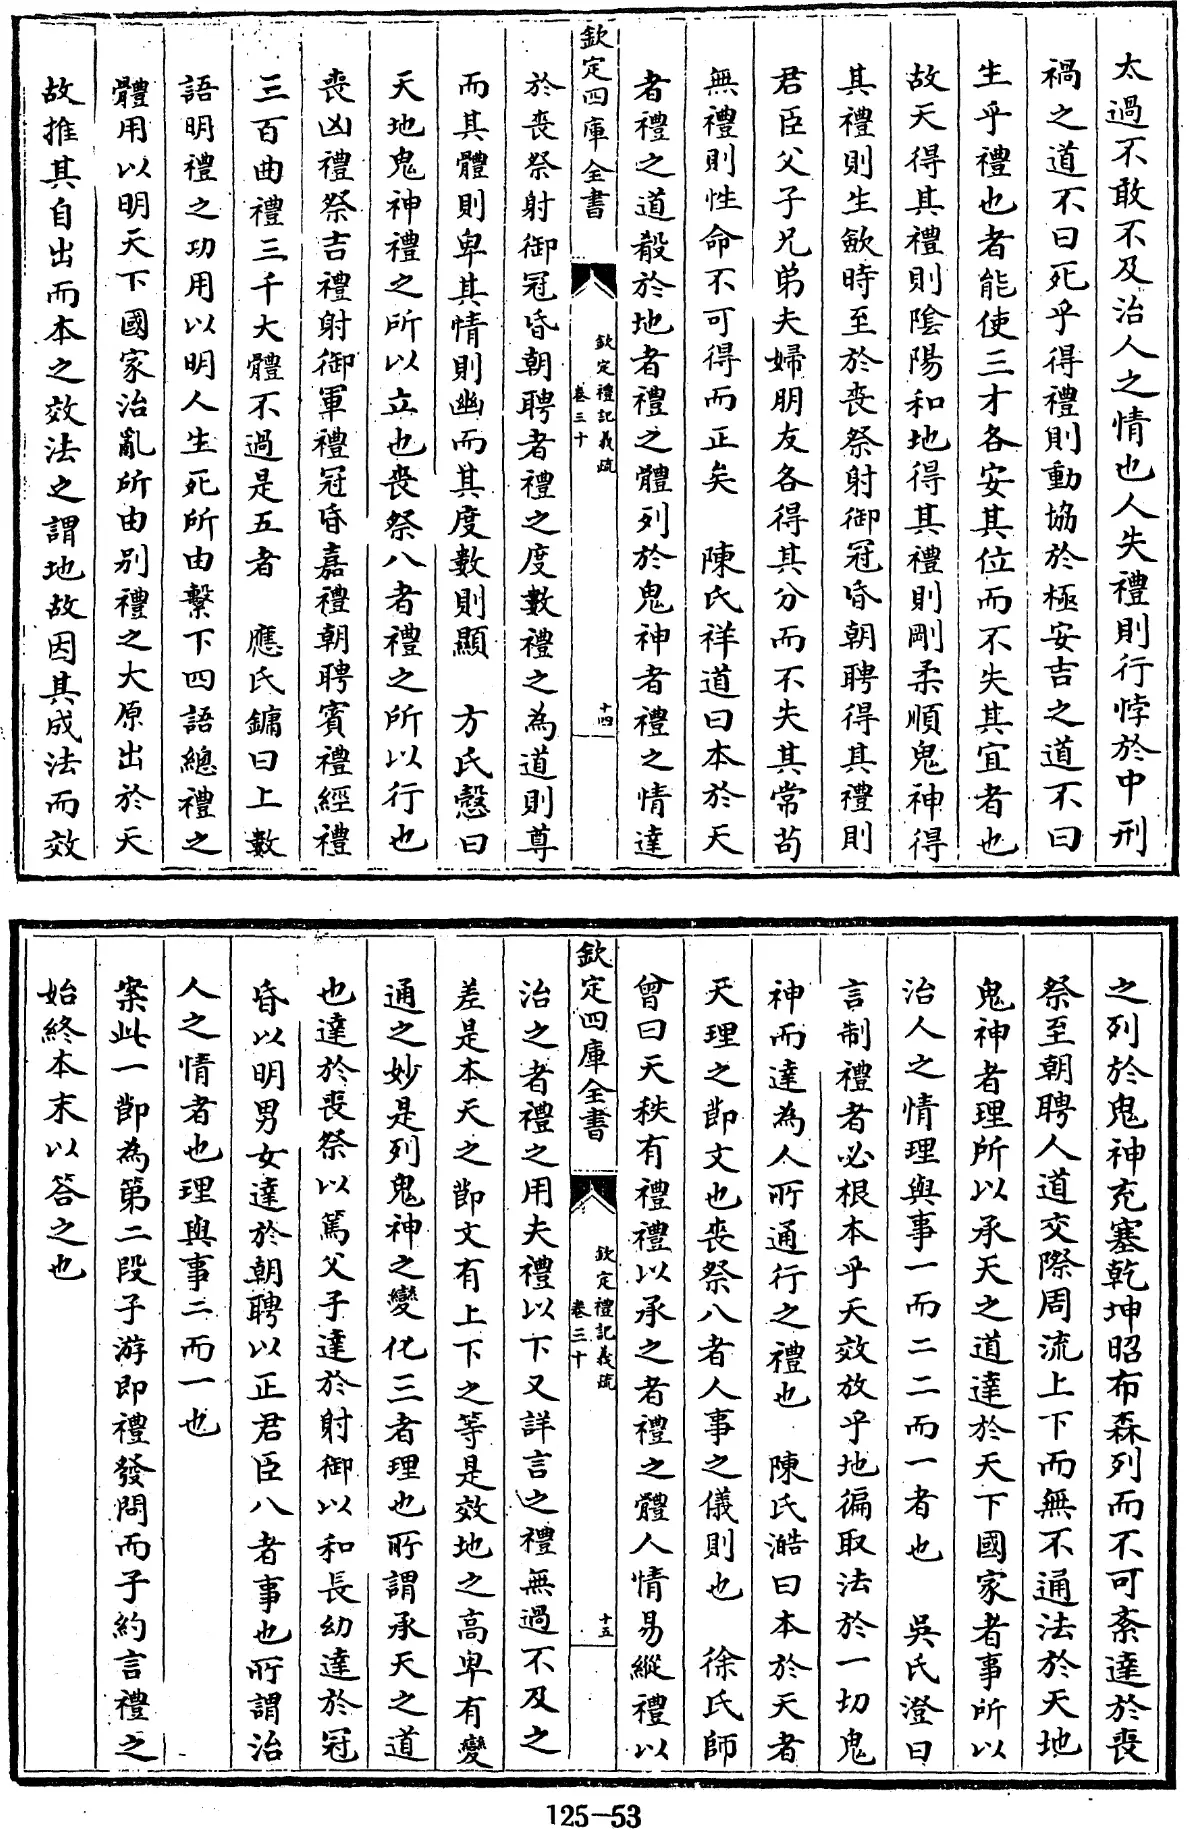 太過不敢不及治人之情也人失禮則行悖於中刑
禍之道不曰死乎得禮則動協於極安吉之道不曰
生乎禮也者能使三才各安其位而不失其宜者也
故天得其禮則陰陽和地得其禮則剛柔順鬼神得
其禮則生歆時至於喪祭射御冠昏朝聘得其禮則
君臣父子兄弟夫婦朋友各得其分而不失其常苟
無禮則性命不可得而正矣 陳氏祥道曰本於天
者禮之道殽於地者禮之體列於鬼神者禮之情達
欽定四庫全書 欽定禮記義疏 卷三十 十四
於喪祭射御冠昏朝聘者禮之度數禮之為道則尊
而其體則卑其情則幽而其度數則顯 方氏慤曰
天地鬼神禮之所以立也喪祭八者禮之所以行也
喪凶禮祭吉禮射御軍禮冠昏嘉禮朝聘賓禮經禮
三百曲禮三千大體不過是五者 應氏鏞曰上數
語明禮之功用以明人生死所由繫下四語總禮之
體用以明天下國家治亂所由别禮之大原出於天
故推其自出而本之效法之謂地故因其成法而效
之列於鬼神充塞乾坤昭布森列而不可紊達於喪
祭至朝聘人道交際周流上下而無不通法於天地
鬼神者理所以承天之道達於天下國家者事所以
治人之情理與事一而二二而一者也 吳氏澄曰
言制禮者必根本乎天效放乎地徧取法於一切鬼
神而達為人所通行之禮也 陳氏澔曰本於天者
天理之節文也喪祭八者人事之儀則也 徐氏師
曾曰天秩有禮禮以承之者禮之體人情易縱禮以
欽定四庫全書 欽定禮記義疏 卷三十 十五
治之者禮之用夫禮以下又詳言之禮無過不及之
差是本天之節文有上下之等是效地之高卑有變
通之妙是列鬼神之變化三者理也所謂承天之道
也達於喪祭以篤父子達於射御以和長幼達於冠
昏以明男女達於朝聘以正君臣八者事也所謂治
人之情者也理與事二而一也
案此一節為第二段子游即禮發問而子約言禮之
始終本末以答之也
125-53